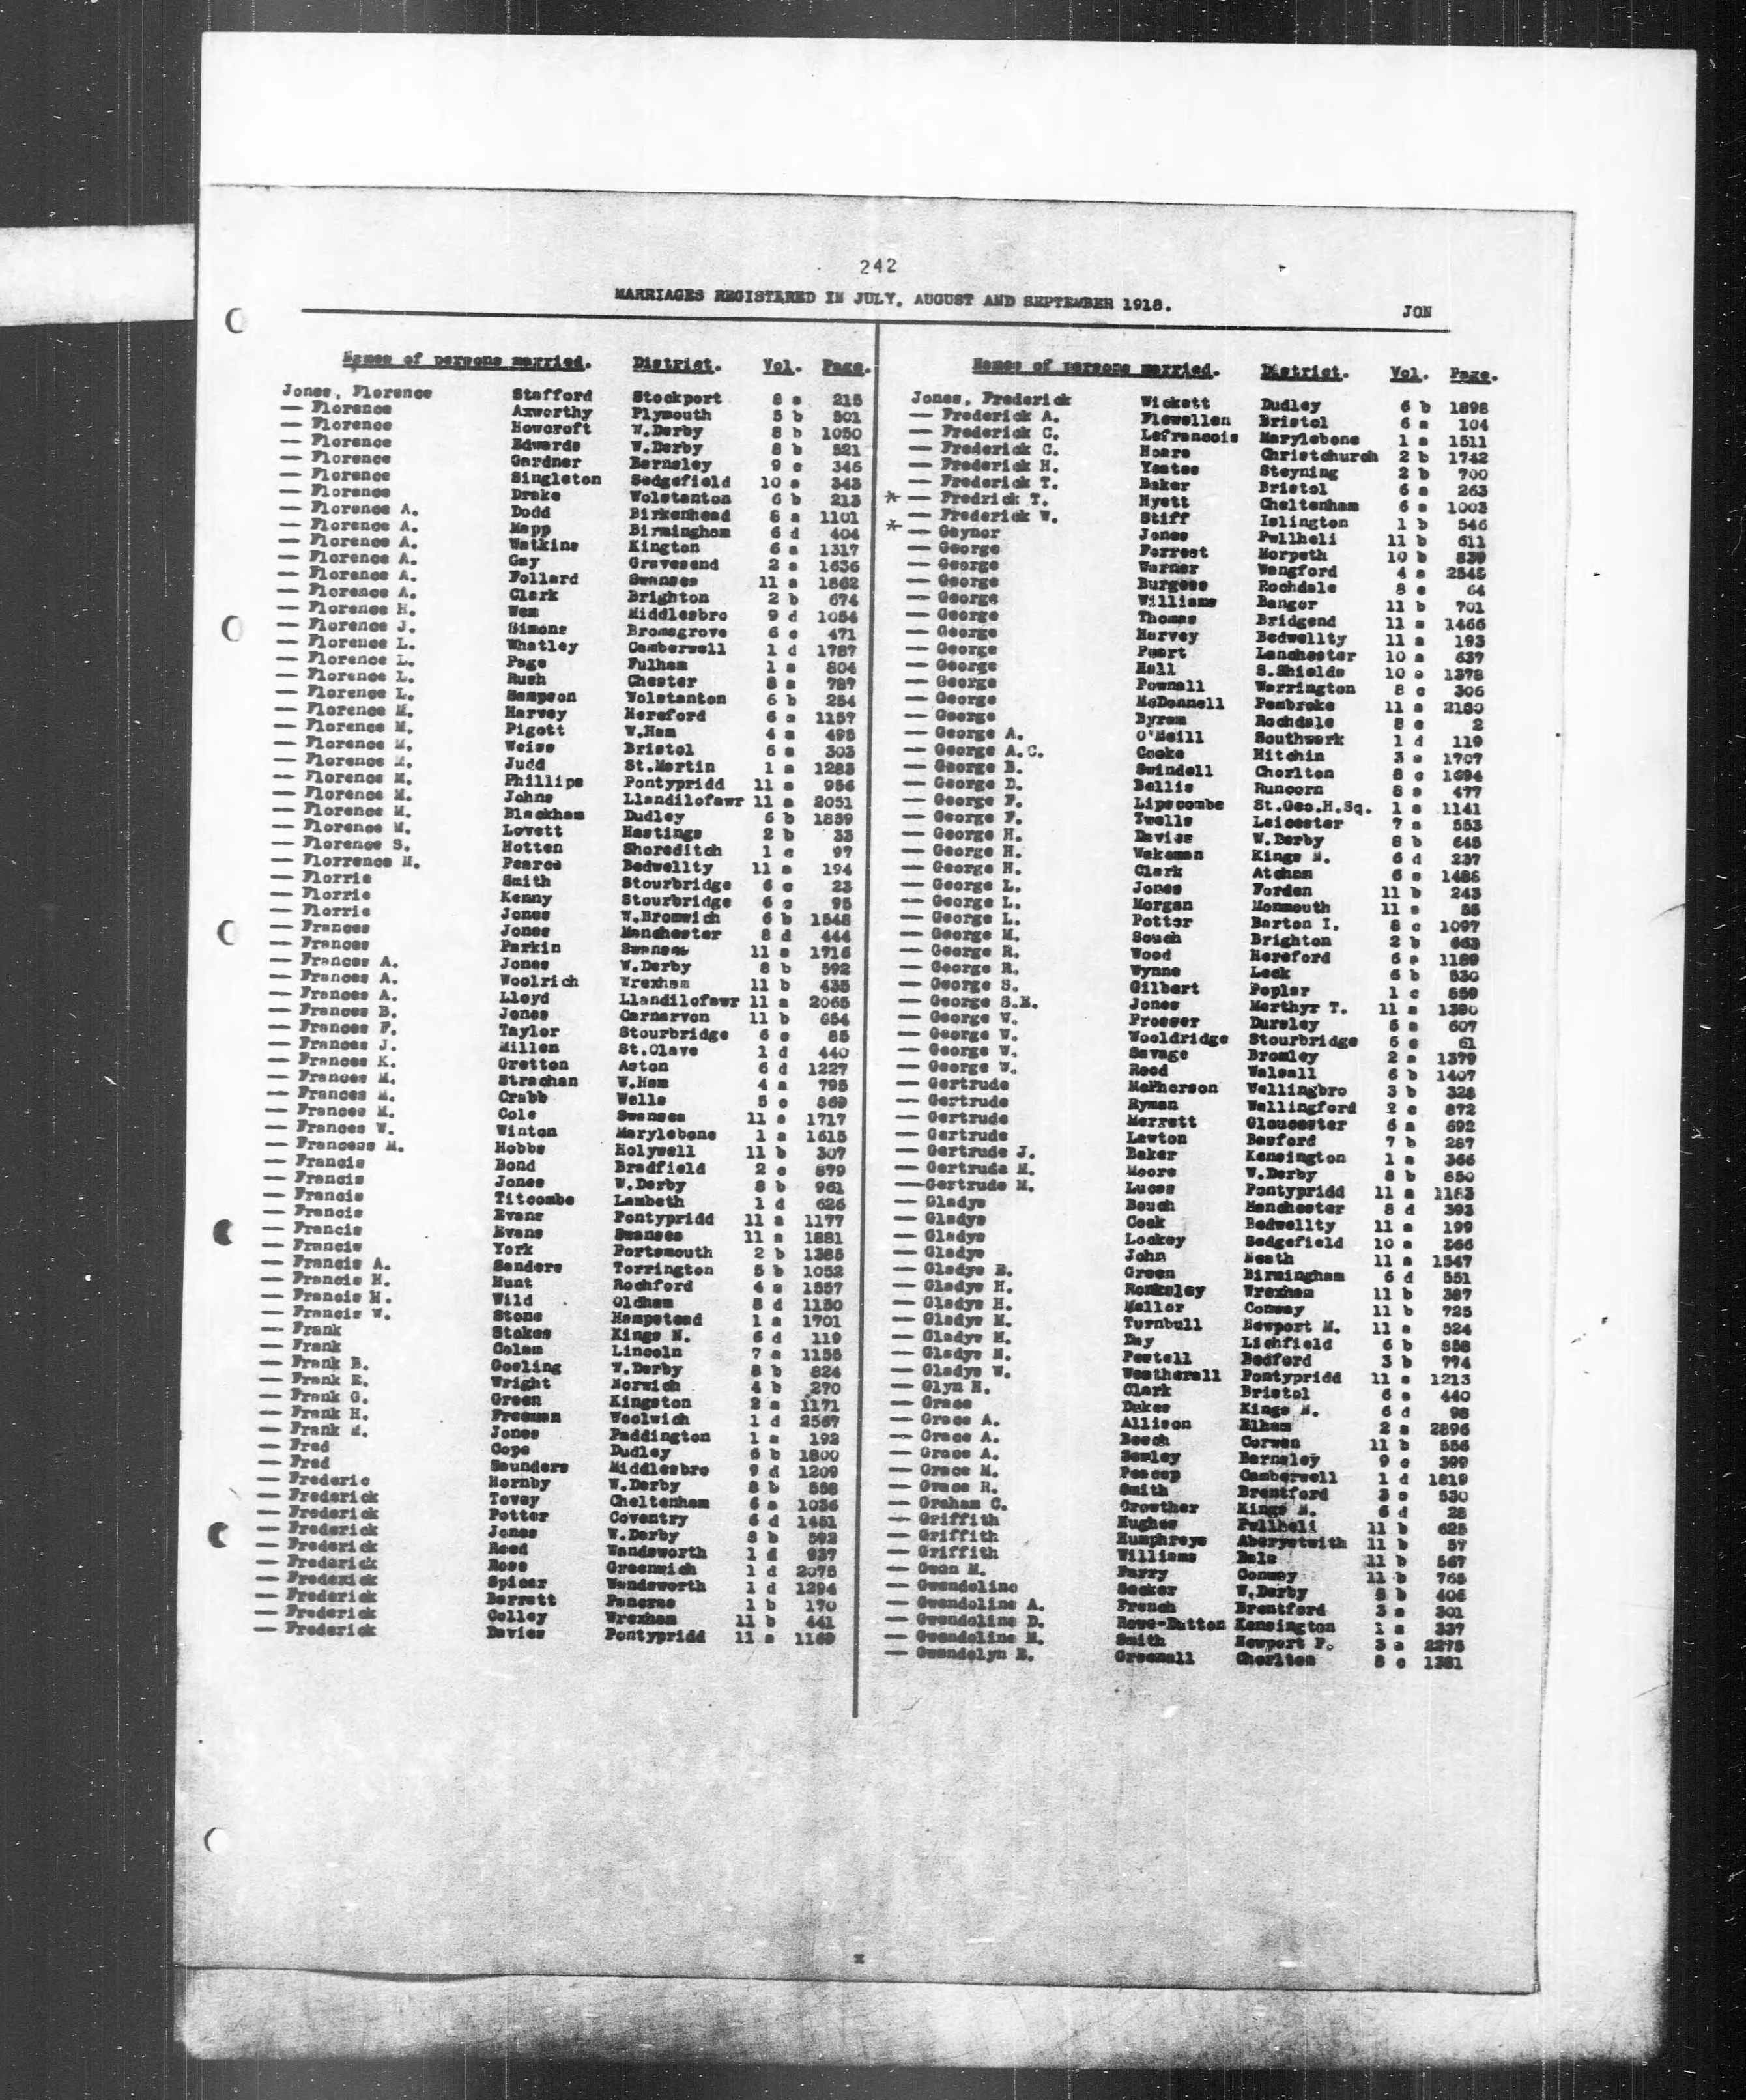 242
MARRIAGES REGISTERED IN JULY, AUGUST AND SEPTEMBER 1918.
JON
Names of persons married. District. Vol. Page.
Jones, Florence Stafford Stockport 8 a 215
— Florence Axworthy Plymouth 5 b 501
— Florence Howcroft W.Derby 8 b 1050
— Florence Edwards W.Derby 8 b 521
— Florence Gardner Barnsley 9 c 346
— Florence Singleton Sedgefield 10 a 343
— Florence Drake Wolstanton 6 b 213
— Florence A. Dodd Birkenhead 8 a 1101
— Florence A. Mapp Birmingham 6 d 404
— Florence A. Watkins Kington 6 a 1317
— Florence A. Gay Gravesend 2 a 1636
— Florence A. Follard Swansea 11 a 1862
— Florence A. Clark Brighton 2 b 674
— Florence H. Wem Middlesbro 9 d 1054
— Florence J. Simons Bromsgrove 6 c 471
— Florence L. Whatley Camberwell 1 d 1787
— Florence L. Page Fulham 1 a 804
— Florence L. Rush Chester 8 a 787
— Florence L. Sampson Wolstanton 6 b 254
— Florence M. Harvey Hereford 6 a 1157
— Florence M. Pigott W.Ham 4 a 495
— Florence M. Weiss Bristol 6 a 303
— Florence M. Judd St.Martin 1 a 1283
— Florence M. Phillips Pontypridd 11 a 956
— Florence M. Johns Llandilofawr 11 a 2051
— Florence M. Blackham Dudley 6 b 1839
— Florence M. Lovett Hastings 2 b 33
— Florence S. Hotten Shoreditch 1 c 97
— Florrence M. Pearce Bedwellty 11 a 194
— Florrie Smith Stourbridge 6 c 23
— Florrie Kenny Stourbridge 6 c 95
— Florrie Jones W.Bromwich 6 b 1548
— Frances Jones Manchester 8 d 444
— Frances Parkin Swansea 11 a 1716
— Frances A. Jones W.Derby 8 b 592
— Frances A. Woolrich Wrexham 11 b 435
— Frances A. Lloyd Llandilofawr 11 a 2065
— Frances B. Jones Carnarvon 11 b 654
— Frances F. Taylor Stourbridge 6 c 85
— Frances J. Millen St.Olave 1 d 440
— Frances K. Gretton Aston 6 d 1227
— Frances M. Strachan W.Ham 4 a 795
— Frances M. Crabb Wells 5 c 869
— Frances M. Cole Swansea 11 a 1717
— Frances W. Winton Marylebone 1 a 1615
— Francess M. Hobbs Holywell 11 b 307
— Francis Bond Bradfield 2 c 879
— Francis Jones W.Derby 8 b 961
— Francis Titcombe Lambeth 1 d 626
— Francis Evans Pontypridd 11 a 1177
— Francis Evans Swansea 11 a 1881
— Francis York Portsmouth 2 b 1385
— Francis A. Sanders Torrington 5 b 1052
— Francis H. Hunt Rochford 4 a 1557
— Francis M. Wild Oldham 8 d 1150
— Francis W. Stone Hampstead 1 a 1701
— Frank Stokes Kings N. 6 d 119
— Frank Colam Lincoln 7 a 1155
— Frank B. Gosling W.Derby 8 b 824
— Frank E. Wright Norwich 4 b 270
— Frank G. Green Kingston 2 a 1171
— Frank H. Freeman Woolwich 1 d 2567
— Frank M. Jones Paddington 1 a 192
— Fred Cope Dudley 6 b 1800
— Fred Saunders Middlesbro 9 d 1209
— Frederic Hornby W.Derby 8 b 558
— Frederick Tovey Cheltenham 6 a 1036
— Frederick Potter Coventry 6 d 1451
— Frederick Jones W.Derby 8 b 592
— Frederick Reed Wandsworth 1 d 937
— Frederick Rose Greenwich 1 d 2075
— Frederick Spicer Wandsworth 1 d 1294
— Frederick Barrett Pancras 1 b 170
— Frederick Colley Wrexham 11 b 441
— Frederick Davies Pontypridd 11 a 1169
Names of persons married. District. Vol. Page.
Jones, Frederick Wickett Dudley 6 b 1898
— Frederick A. Flewellen Bristol 6 a 104
— Frederick C. Lefrancois Marylebone 1 a 1511
— Frederick C. Hoare Christchurch 2 b 1742
— Frederick H. Yeates Steyning 2 b 700
— Frederick T. Baker Bristol 6 a 263
* — Fredrick T. Hyett Cheltenham 6 a 1003
— Frederick W. Stiff Islington 1 b 546
* — Gaynor Jones Pwllheli 11 b 611
— George Forrest Morpeth 10 b 839
— George Warner Wangford 4 a 2545
— George Burgess Rochdale 8 e 64
— George Williams Bangor 11 b 701
— George Thomas Bridgend 11 a 1466
— George Harvey Bedwellty 11 a 193
— George Peart Lanchester 10 a 637
— George Hall S.Shields 10 a 1378
— George Pownall Warrington 8 c 306
— George McDonnell Pembroke 11 a 2180
— George Byrom Rochdale 8 e 2
— George A. O'Neill Southwark 1 d 119
— George A.C. Cooke Hitchin 3 a 1707
— George B. Swindell Chorlton 8 c 1694
— George D. Bellis Runcorn 8 a 477
— George F. Lipscombe St.Geo.H.Sq. 1 a 1141
— George F. Twells Leicester 7 a 553
— George H. Davies W.Derby 8 b 645
— George H. Wakeman Kings N. 6 d 237
— George H. Clark Atcham 6 a 1486
— George L. Jones Forden 11 b 243
— George L. Morgan Monmouth 11 a 55
— George L. Potter Barton I. 8 c 1097
— George M. Souch Brighton 2 b 663
— George R. Wood Hereford 6 a 1189
— George R. Wynne Leek 6 b 530
— George S. Gilbert Poplar 1 c 559
— George S.H. Jones Merthyr T. 11 a 1390
— George W. Prosser Dursley 6 a 607
— George W. Wooldridge Stourbridge 6 c 61
— George W. Savage Bromley 2 a 1379
— George W. Reed Walsall 6 b 1407
— Gertrude McPherson Wellingbro 3 b 328
— Gertrude Ryman Wallingford 2 c 872
— Gertrude Merrett Gloucester 6 a 692
— Gertrude Lawton Basford 7 b 287
— Gertrude J. Baker Kensington 1 a 366
— Gertrude M. Moore W.Derby 8 b 850
— Gertrude M. Lucas Pontypridd 11 a 1153
— Gladys Bouch Manchester 8 d 393
— Gladys Cook Bedwellty 11 a 199
— Gladys Lockey Sedgefield 10 a 366
— Gladys John Neath 11 a 1547
— Gladys E. Green Birmingham 6 d 551
— Gladys H. Ronksley Wrexham 11 b 387
— Gladys H. Mellor Conway 11 b 725
— Gladys M. Turnbull Newport M. 11 a 524
— Gladys M. Day Lichfield 6 b 858
— Gladys M. Postell Bedford 3 b 774
— Gladys W. Weatherall Pontypridd 11 a 1213
— Glyn H. Clark Bristol 6 a 440
— Grace Dukes Kings N. 6 d 98
— Grace A. Allison Elham 2 a 2896
— Grace A. Beech Corwen 11 b 556
— Grace A. Senley Barnsley 9 c 399
— Grace M. Peacop Camberwell 1 d 1819
— Grace R. Smith Brentford 3 a 530
— Graham C. Crowther Kings N. 6 d 28
— Griffith Hughes Pwllheli 11 b 625
— Griffith Humphreys Aberystwith 11 b 57
— Griffith Williams Bala 11 b 567
— Gwen M. Parry Conway 11 b 765
— Gwendoline Secker W.Derby 8 b 406
— Gwendoline A. French Brentford 3 a 301
— Gwendoline D. Rowe-Dutton Kensington 1 a 337
— Gwendoline M. Smith Newport P. 3 a 2275
— Gwendolyn E. Greenall Chorlton 8 c 1381